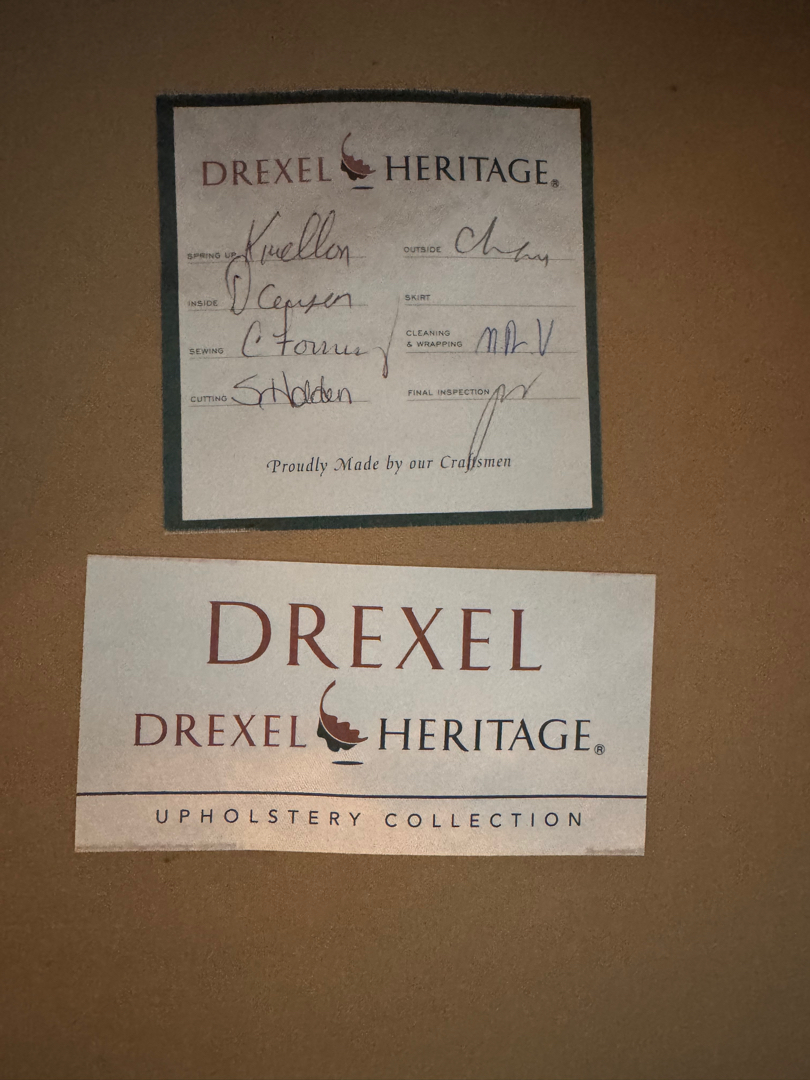 DREXEL HERITAGE®
SPRING UP
OUTSIDE
INSIDE
SKIRT
SEWING C
CLEANING
& WRAPPING
CUTTING Holden
FINAL INSPECTION
Proudly Made by our Craftsmen
DREXEL
DREXEL HERITAGE®
UPHOLSTERY COLLECTION